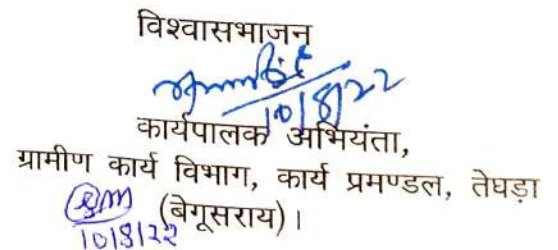 विश्वासभाजन
10/8/22
कार्यपालक अभियंता,
ग्रामीण कार्य विभाग, कार्य प्रमण्डल, तेघड़ा
(बेगूसराय)।
10/8/22